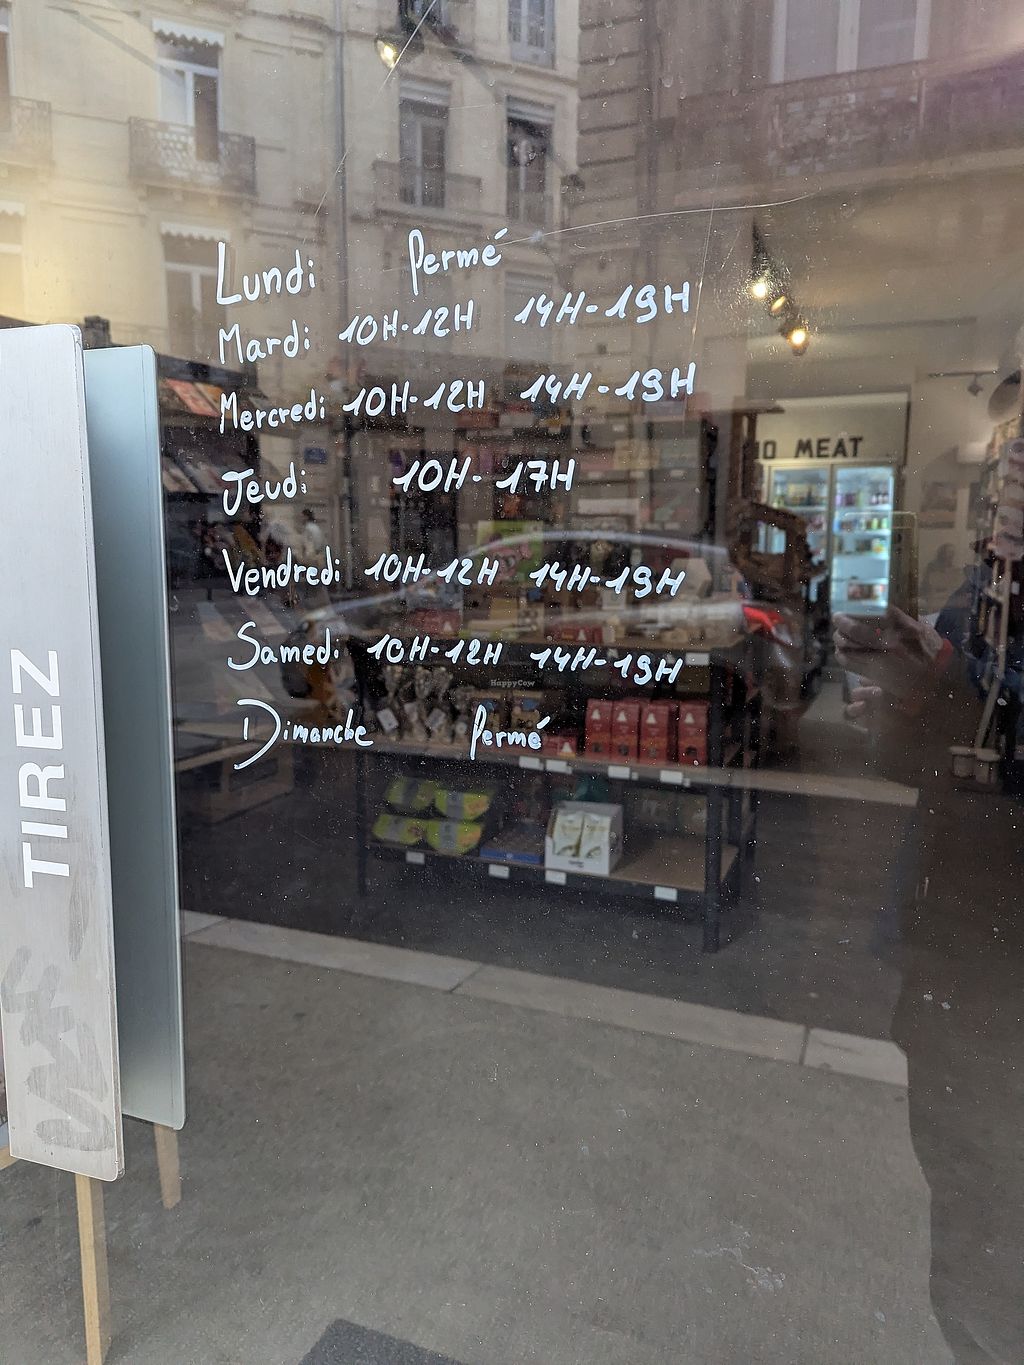 Lundi fermé
Mardi 10H-12H 14H-19H
Mercredi 10H-12H 14H-19H
Jeudi 10H-17H
Vendredi 10H-12H 14H-19H
Samedi 10H-12H 14H-19H
Dimanche fermé
TIREZ
MEAT
HappyCow